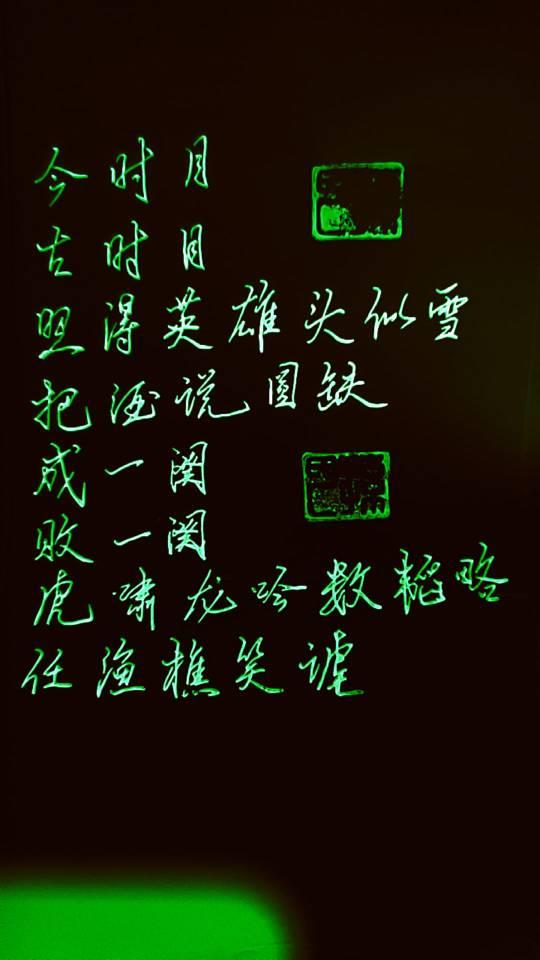 今时月
古时月
照得英雄头似雪
把酒说圆缺
成一阕
败一阕
虎啸龙吟数韬略
任渔樵笑谑